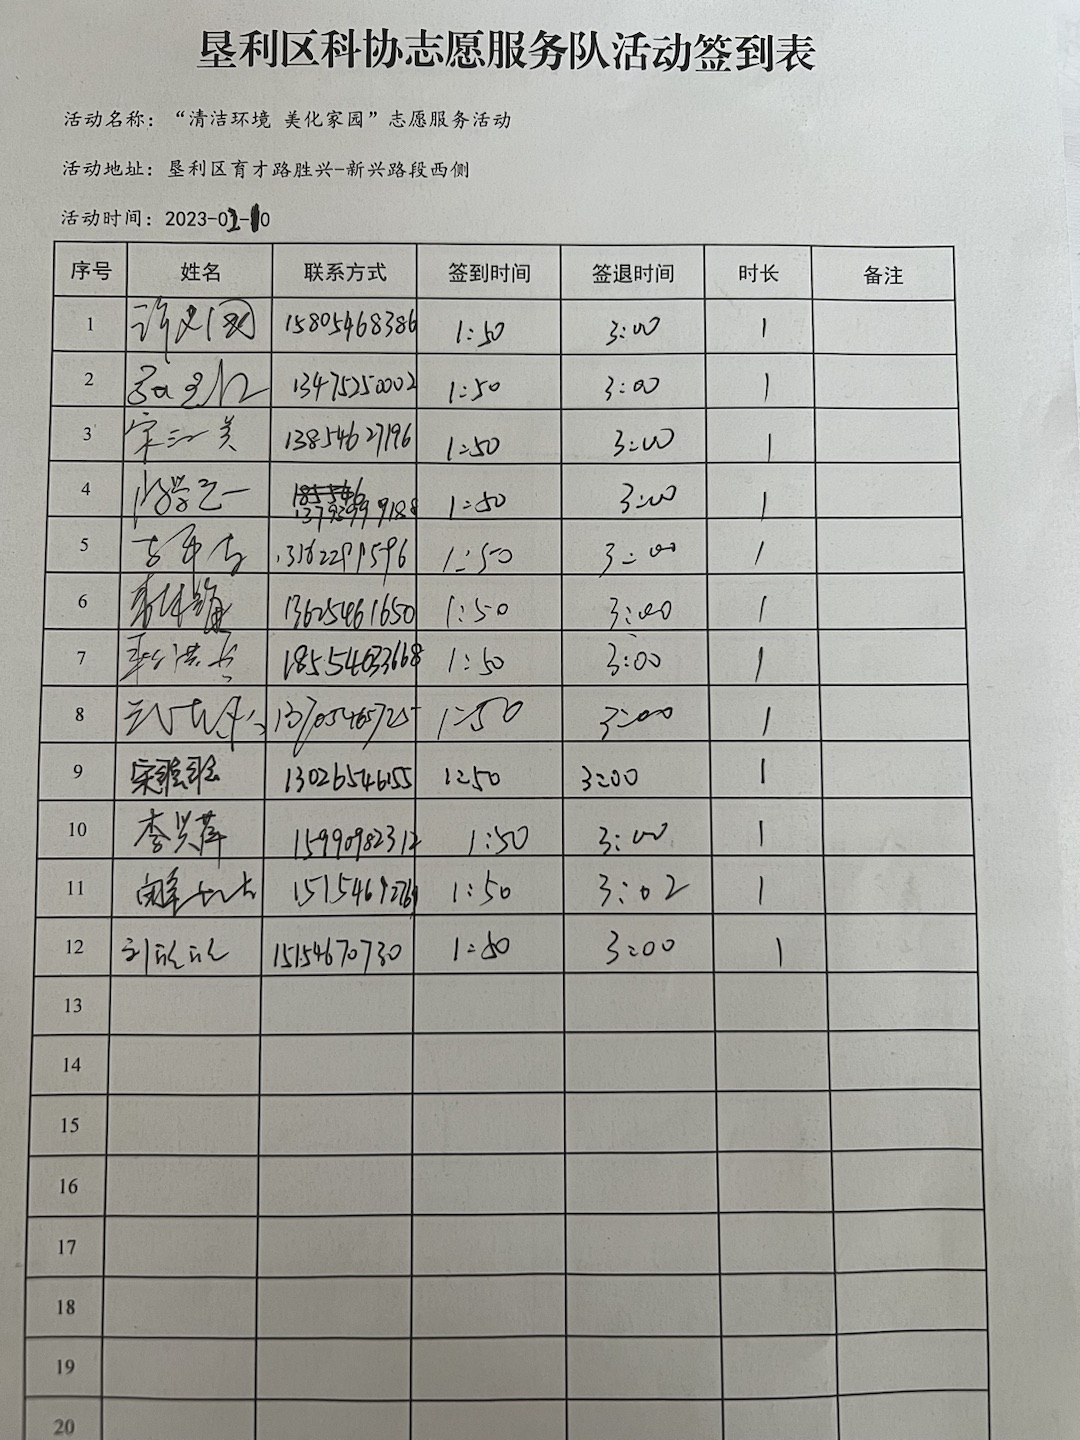 垦利区科协志愿服务队活动签到表
活动名称：“清洁环境 美化家园”志愿服务活动
活动地址：垦利区育才路胜兴-新兴路段西侧
活动时间：2023-0 - 0
序号 姓名 联系方式 签到时间 签退时间 时长 备注
1 15805468386 1:50 3:00 1
2 13475250002 1:50 3:00 1
3 宋 美 13854627196 1:50 3:00 1
4 1:50 3:00 1
5 1:50 3:00 1
6 13625461650 1:50 3:00 1
7 18554633668 1:50 3:00 1
8 13705465725 1:50 3:00 1
9 宋 13026546155 1:50 3:00 1
10 李兴萍 15990982312 1:50 3:00 1
11 1:50 3:02 1
12 刘欣欣 15154670730 1:50 3:00 1
13
14
15
16
17
18
19
20